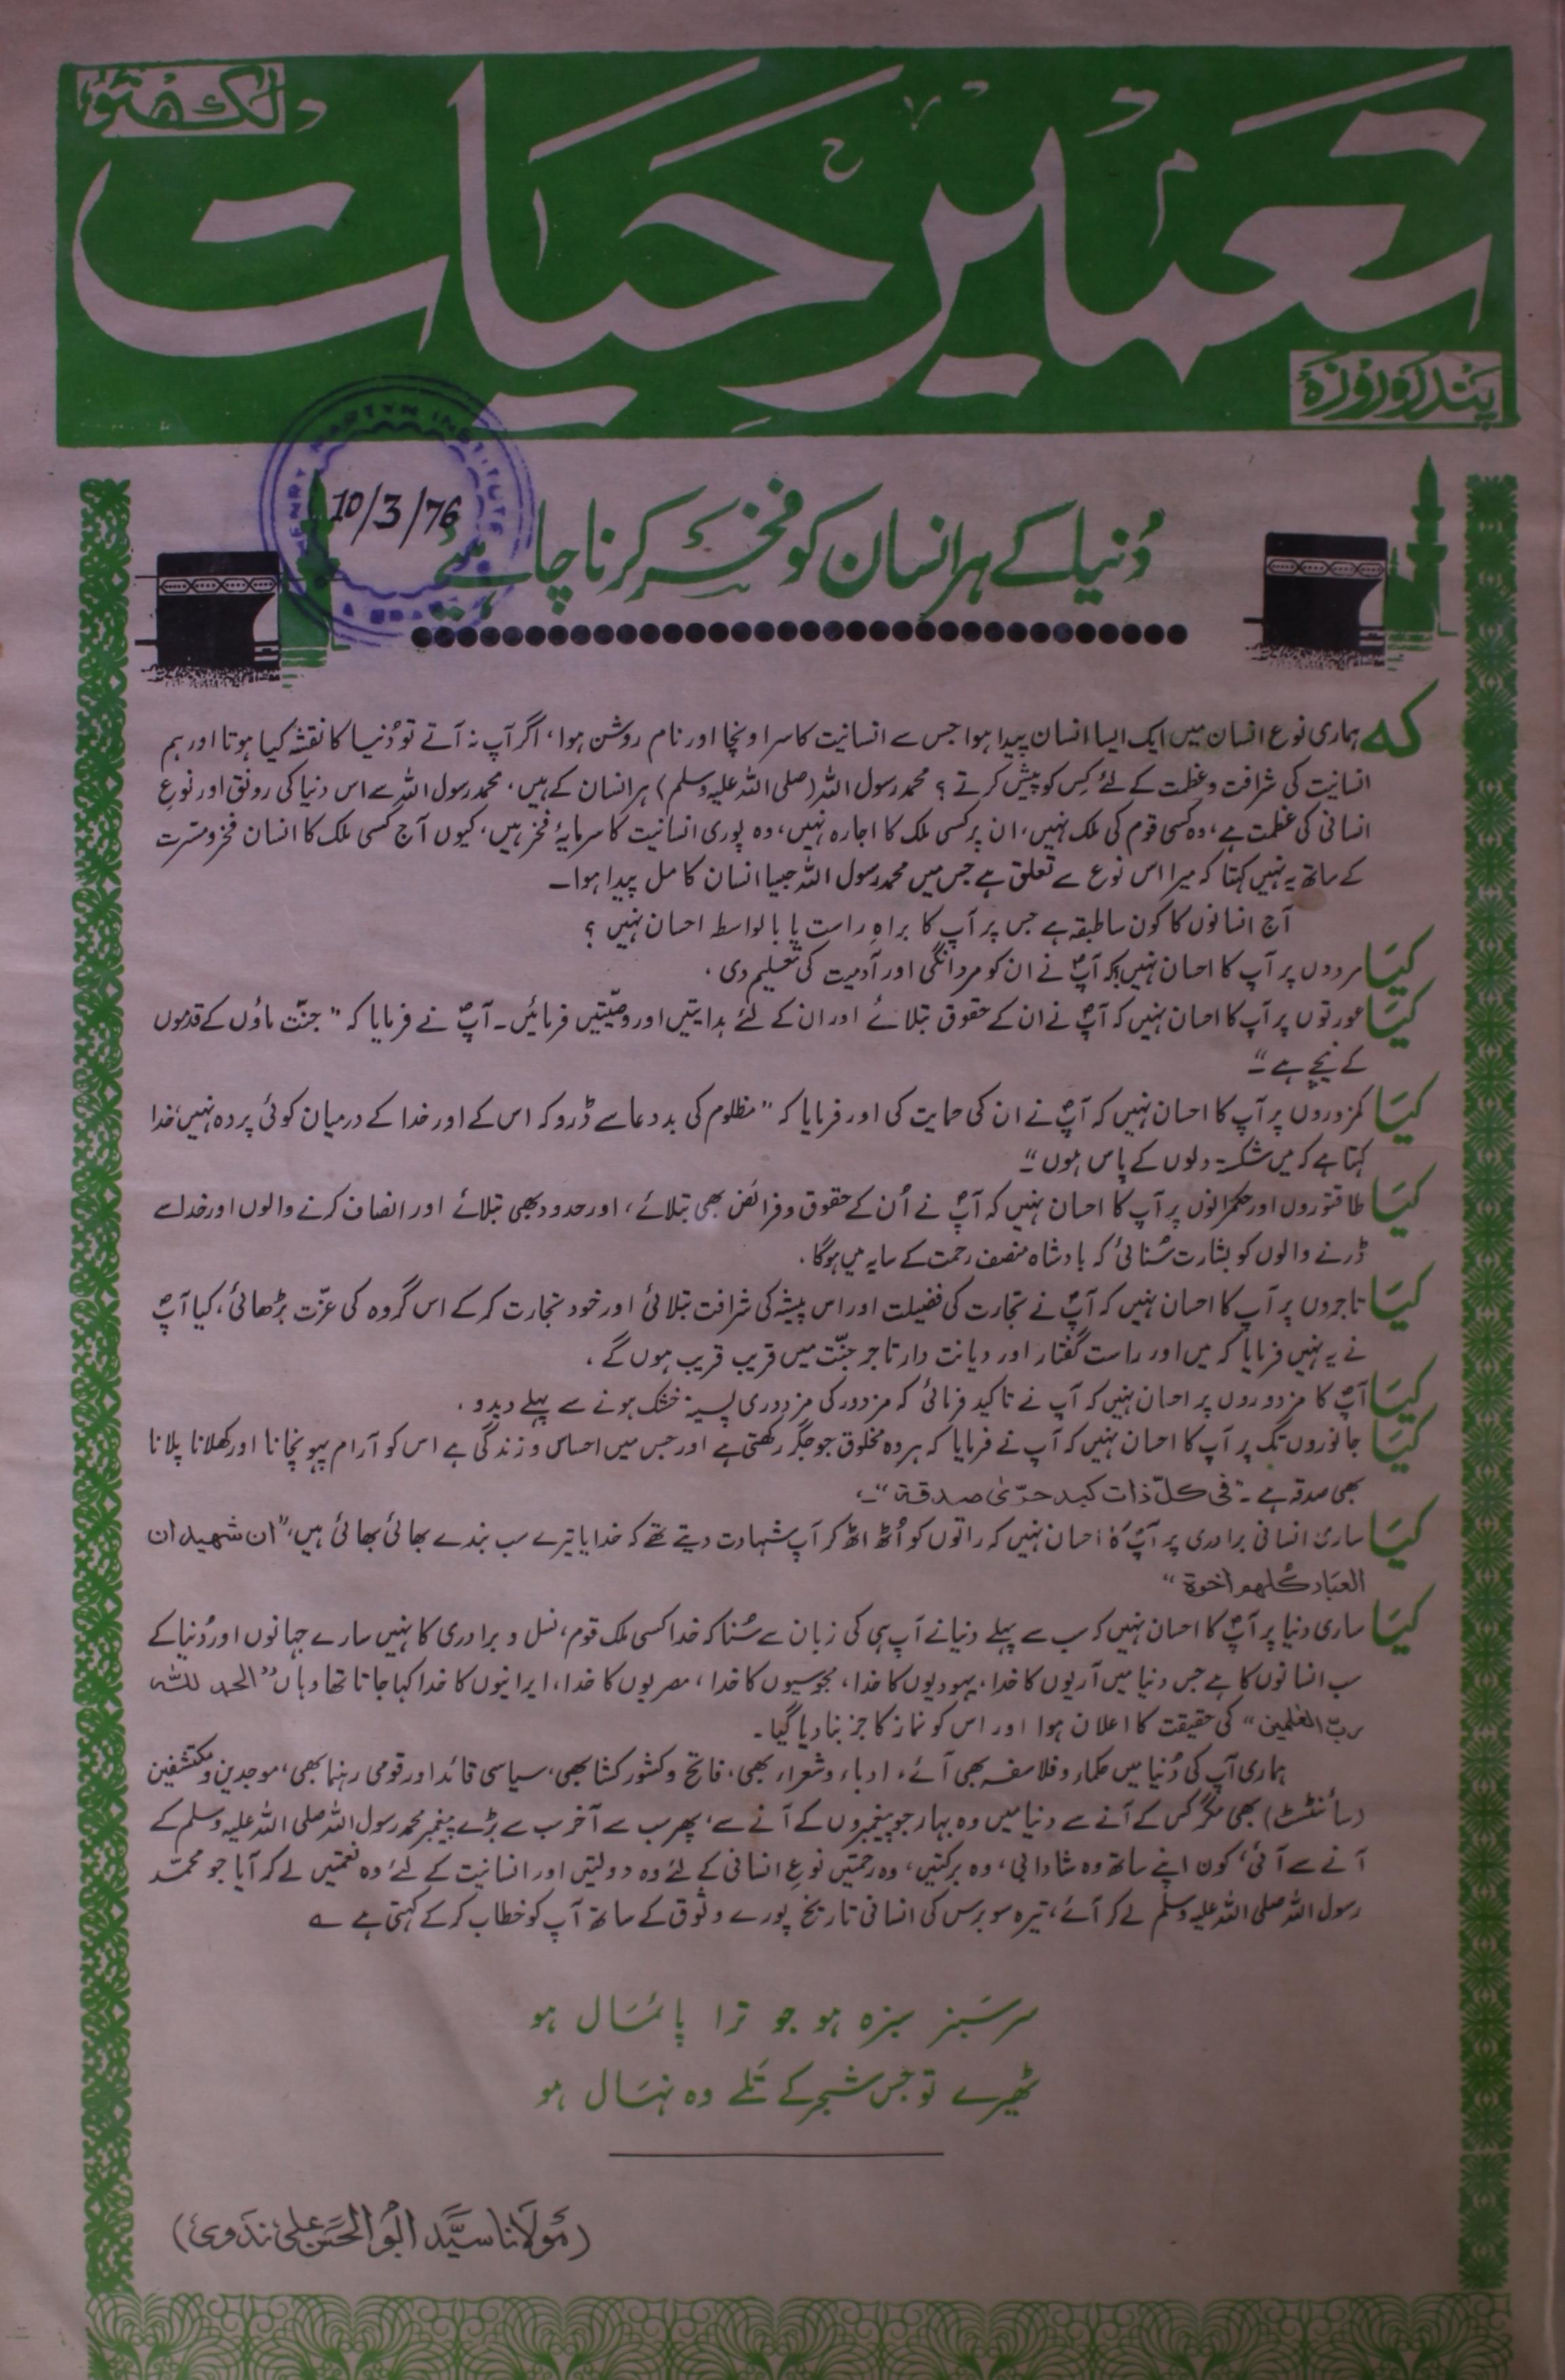 تعمیر حیات
لکھنؤ
پندرہ روزہ
HENRY MARTYN INSTITUTE
10/3/76
دُنیا کے ہر انسان کو فخر کرنا چاہئے
کہ ہماری نوع انسان میں ایک ایسا انسان پیدا ہوا جس سے انسانیت کا سر اونچا اور نام روشن ہوا، اگر آپ نہ آتے تو دُنیا کا نقشہ کیا ہوتا اور ہم
انسانیت کی شرافت و عظمت کے لئے کِس کو پیش کرتے ؟ محمد رسول اللہ (صلی اللہ علیہ وسلم) ہر انسان کے ہیں، محمد رسول اللہ سے اس دنیا کی رونق اور نوعِ
انسانی کی عظمت ہے، وہ کسی قوم کی ملک نہیں، ان پر کسی ملک کا اجارہ نہیں، وہ پوری انسانیت کا سرمایۂ فخر ہیں، کیوں آج کسی ملک کا انسان فخر و مسرت
کے ساتھ یہ نہیں کہتا کہ میرا اس نوع سے تعلق ہے جس میں محمد رسول اللہ جیسا انسان کامل پیدا ہوا۔
آج انسانوں کا کون سا طبقہ ہے جس پر آپ کا براہِ راست یا بالواسطہ احسان نہیں ؟
کیَا مردوں پر آپ کا احسان نہیں کہ آپؐ نے ان کو مردانگی اور آدمیت کی تعلیم دی ،
کیَا عورتوں پر آپ کا احسان نہیں کہ آپؐ نے ان کے حقوق بتلائے اور ان کے لئے ہدایتیں اور وصیّتیں فرمائیں۔ آپؐ نے فرمایا کہ " جنّت ماؤں کے قدموں
کے نیچے ہے "۔
کیَا کمزوروں پر آپ کا احسان نہیں کہ آپؐ نے ان کی حمایت کی اور فرمایا کہ " مظلوم کی بددعا سے ڈرو کہ اس کے اور خدا کے درمیان کوئی پردہ نہیں، خدا
کہتا ہے کہ میں شکستہ دلوں کے پاس ہوں "۔
کیَا طاقتوروں اور حکمرانوں پر آپ کا احسان نہیں کہ آپؐ نے اُن کے حقوق و فرائض بھی بتلائے، اور حدود بھی بتلائے اور انصاف کرنے والوں اور خدا سے
ڈرنے والوں کو بشارت سُنائی کہ بادشاہ منصف رحمت کے سایہ میں ہوگا ،
کیَا تاجروں پر آپ کا احسان نہیں کہ آپؐ نے تجارت کی فضیلت اور اس پیشہ کی شرافت بتلائی اور خود تجارت کر کے اس گروہ کی عزّت بڑھائی، کیا آپؐ
نے یہ نہیں فرمایا کہ میں اور راست گفتار اور دیانت دار تاجر جنّت میں قریب قریب ہوں گے ،
کیَا آپؐ کا مزدوروں پر احسان نہیں کہ آپ نے تاکید فرمائی کہ مزدور کی مزدوری پسینہ خشک ہونے سے پہلے دیدو ،
کیَا جانوروں تک پر آپ کا احسان نہیں کہ آپ نے فرمایا کہ ہر وہ مخلوق جو جگر رکھتی ہے اور جس میں احساس و زندگی ہے اس کو آرام پہونچانا اور کھلانا پلانا
بھی صدقہ ہے ۔ "فی کلّ ذات کبد حرّیٰ صدقۃ"۔
کیَا ساری انسانی برادری پر آپؐ کا احسان نہیں کہ راتوں کو اُٹھ اٹھ کر آپ شہادت دیتے تھے کہ خدایا تیرے سب بندے بھائی بھائی ہیں، "ان شھید ان
العباد کلھم اخوۃ "
کیَا ساری دنیا پر آپؐ کا احسان نہیں کہ سب سے پہلے دنیا نے آپ ہی کی زبان سے سُنا کہ خدا کسی ملک قوم، نسل و برادری کا نہیں سارے جہانوں اور دُنیا کے
سب انسانوں کا ہے جس دنیا میں آریوں کا خدا، یہودیوں کا خدا، مجوسیوں کا خدا، مصریوں کا خدا، ایرانیوں کا خدا کہا جاتا تھا وہاں "الحمد للہ
ربّ العٰلمین" کی حقیقت کا اعلان ہوا اور اس کو نماز کا جز بنا دیا گیا۔
ہماری آپ کی دُنیا میں حکماء و فلاسفہ بھی آئے، ادباء و شعراء بھی، فاتح و کشور کشا بھی، سیاسی قائد اور قومی رہنما بھی، موجدین و مکتشفین
(سائنٹسٹ) بھی مگر کس کے آنے سے دنیا میں وہ بہار جو پیغمبروں کے آنے سے، پھر سب سے آخر سب سے بڑے پیغمبر محمد رسول اللہ صلی اللہ علیہ وسلم کے
آنے سے آئی، کون اپنے ساتھ وہ شادابی، وہ برکتیں، وہ رحمتیں نوعِ انسانی کے لئے وہ دولتیں اور انسانیت کے لئے وہ نعمتیں لے کر آیا جو محمّد
رسول اللہ صلی اللہ علیہ وسلم لے کر آئے، تیرہ سو برس کی انسانی تاریخ پورے وثوق کے ساتھ آپ کو خطاب کر کے کہتی ہے ؎
سرسَبز سبزہ ہو جو ترا پائمَال ہو
ٹھیرے تو جس شجر کے تَلے وہ نہَال ہو
(مَولَانا سیَّد ابُو الحَسَن علی نَدَوی)